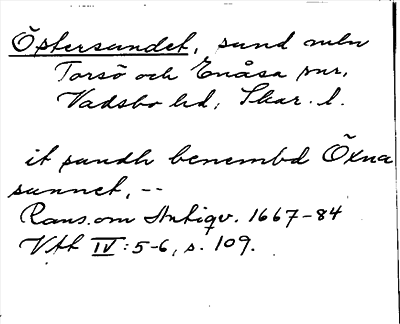 Östersundet, sund mln
Torsö och Enåsa snr,
Vadsbo hd, Skar. l.
it sundh benembd Öxna
sunnet, --
Rans. om Antiqv. 1667-84
Vtt IV:5-6, s. 109.